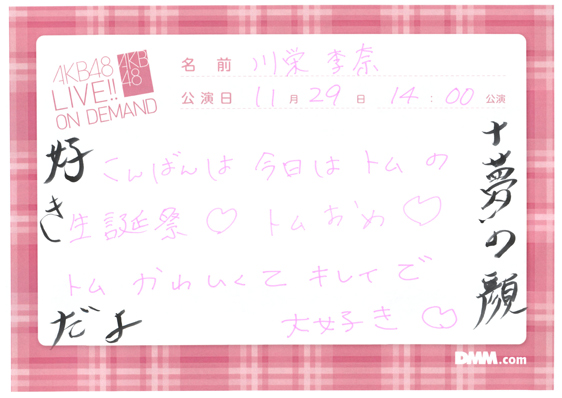 AKB48
LIVE!!
ON DEMAND
AKB
48
名前 川栄 李奈
公演日 11月29日 14:00公演
こんばんは 今日は トム の
生誕祭♡ トム おめ♡
トム かわいくて キレイで
大好き♡
好き
だよ
十夢の顔
DMM.com